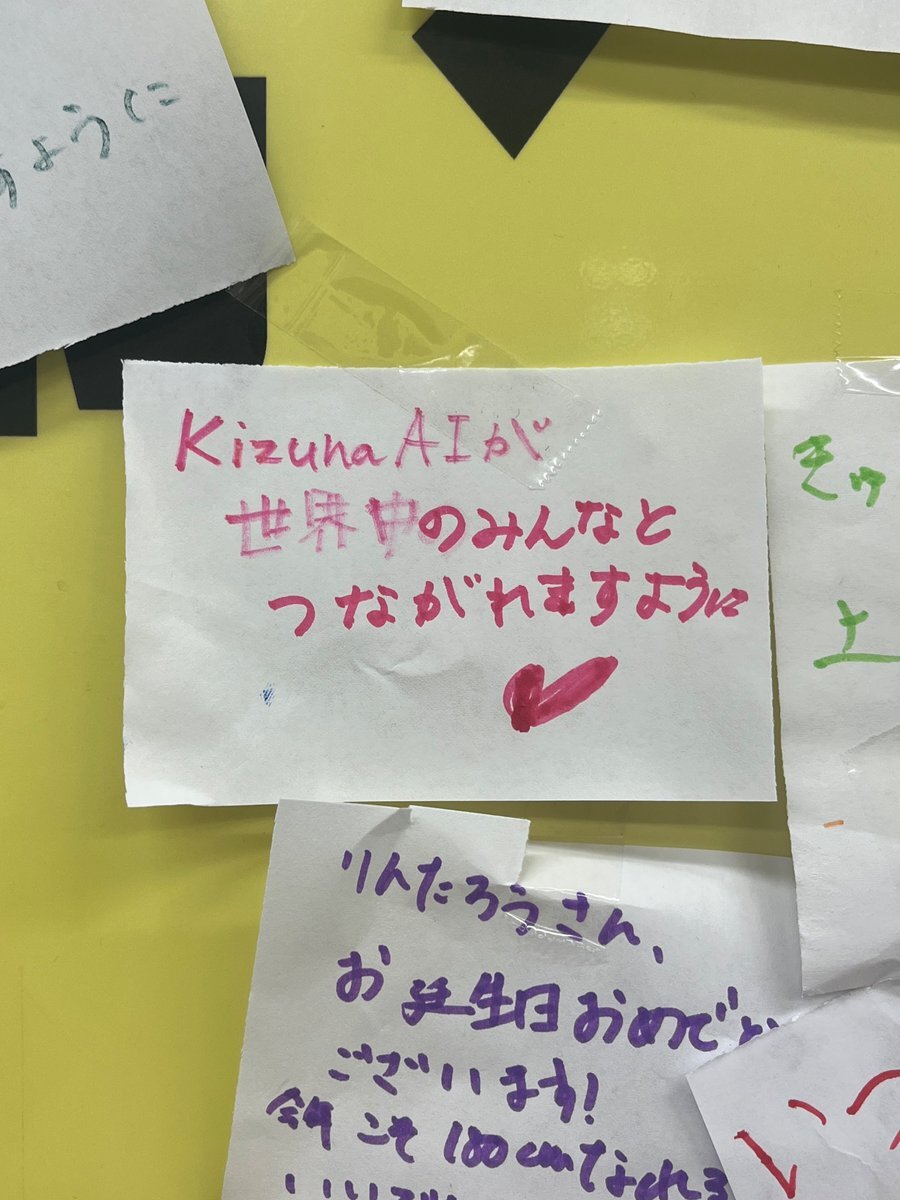 ように
Kizuna AIが
世界中のみんなと
つながれますように
りんたろうさん、
お誕生日おめでと
ございます!
今年こそ180cmなれる